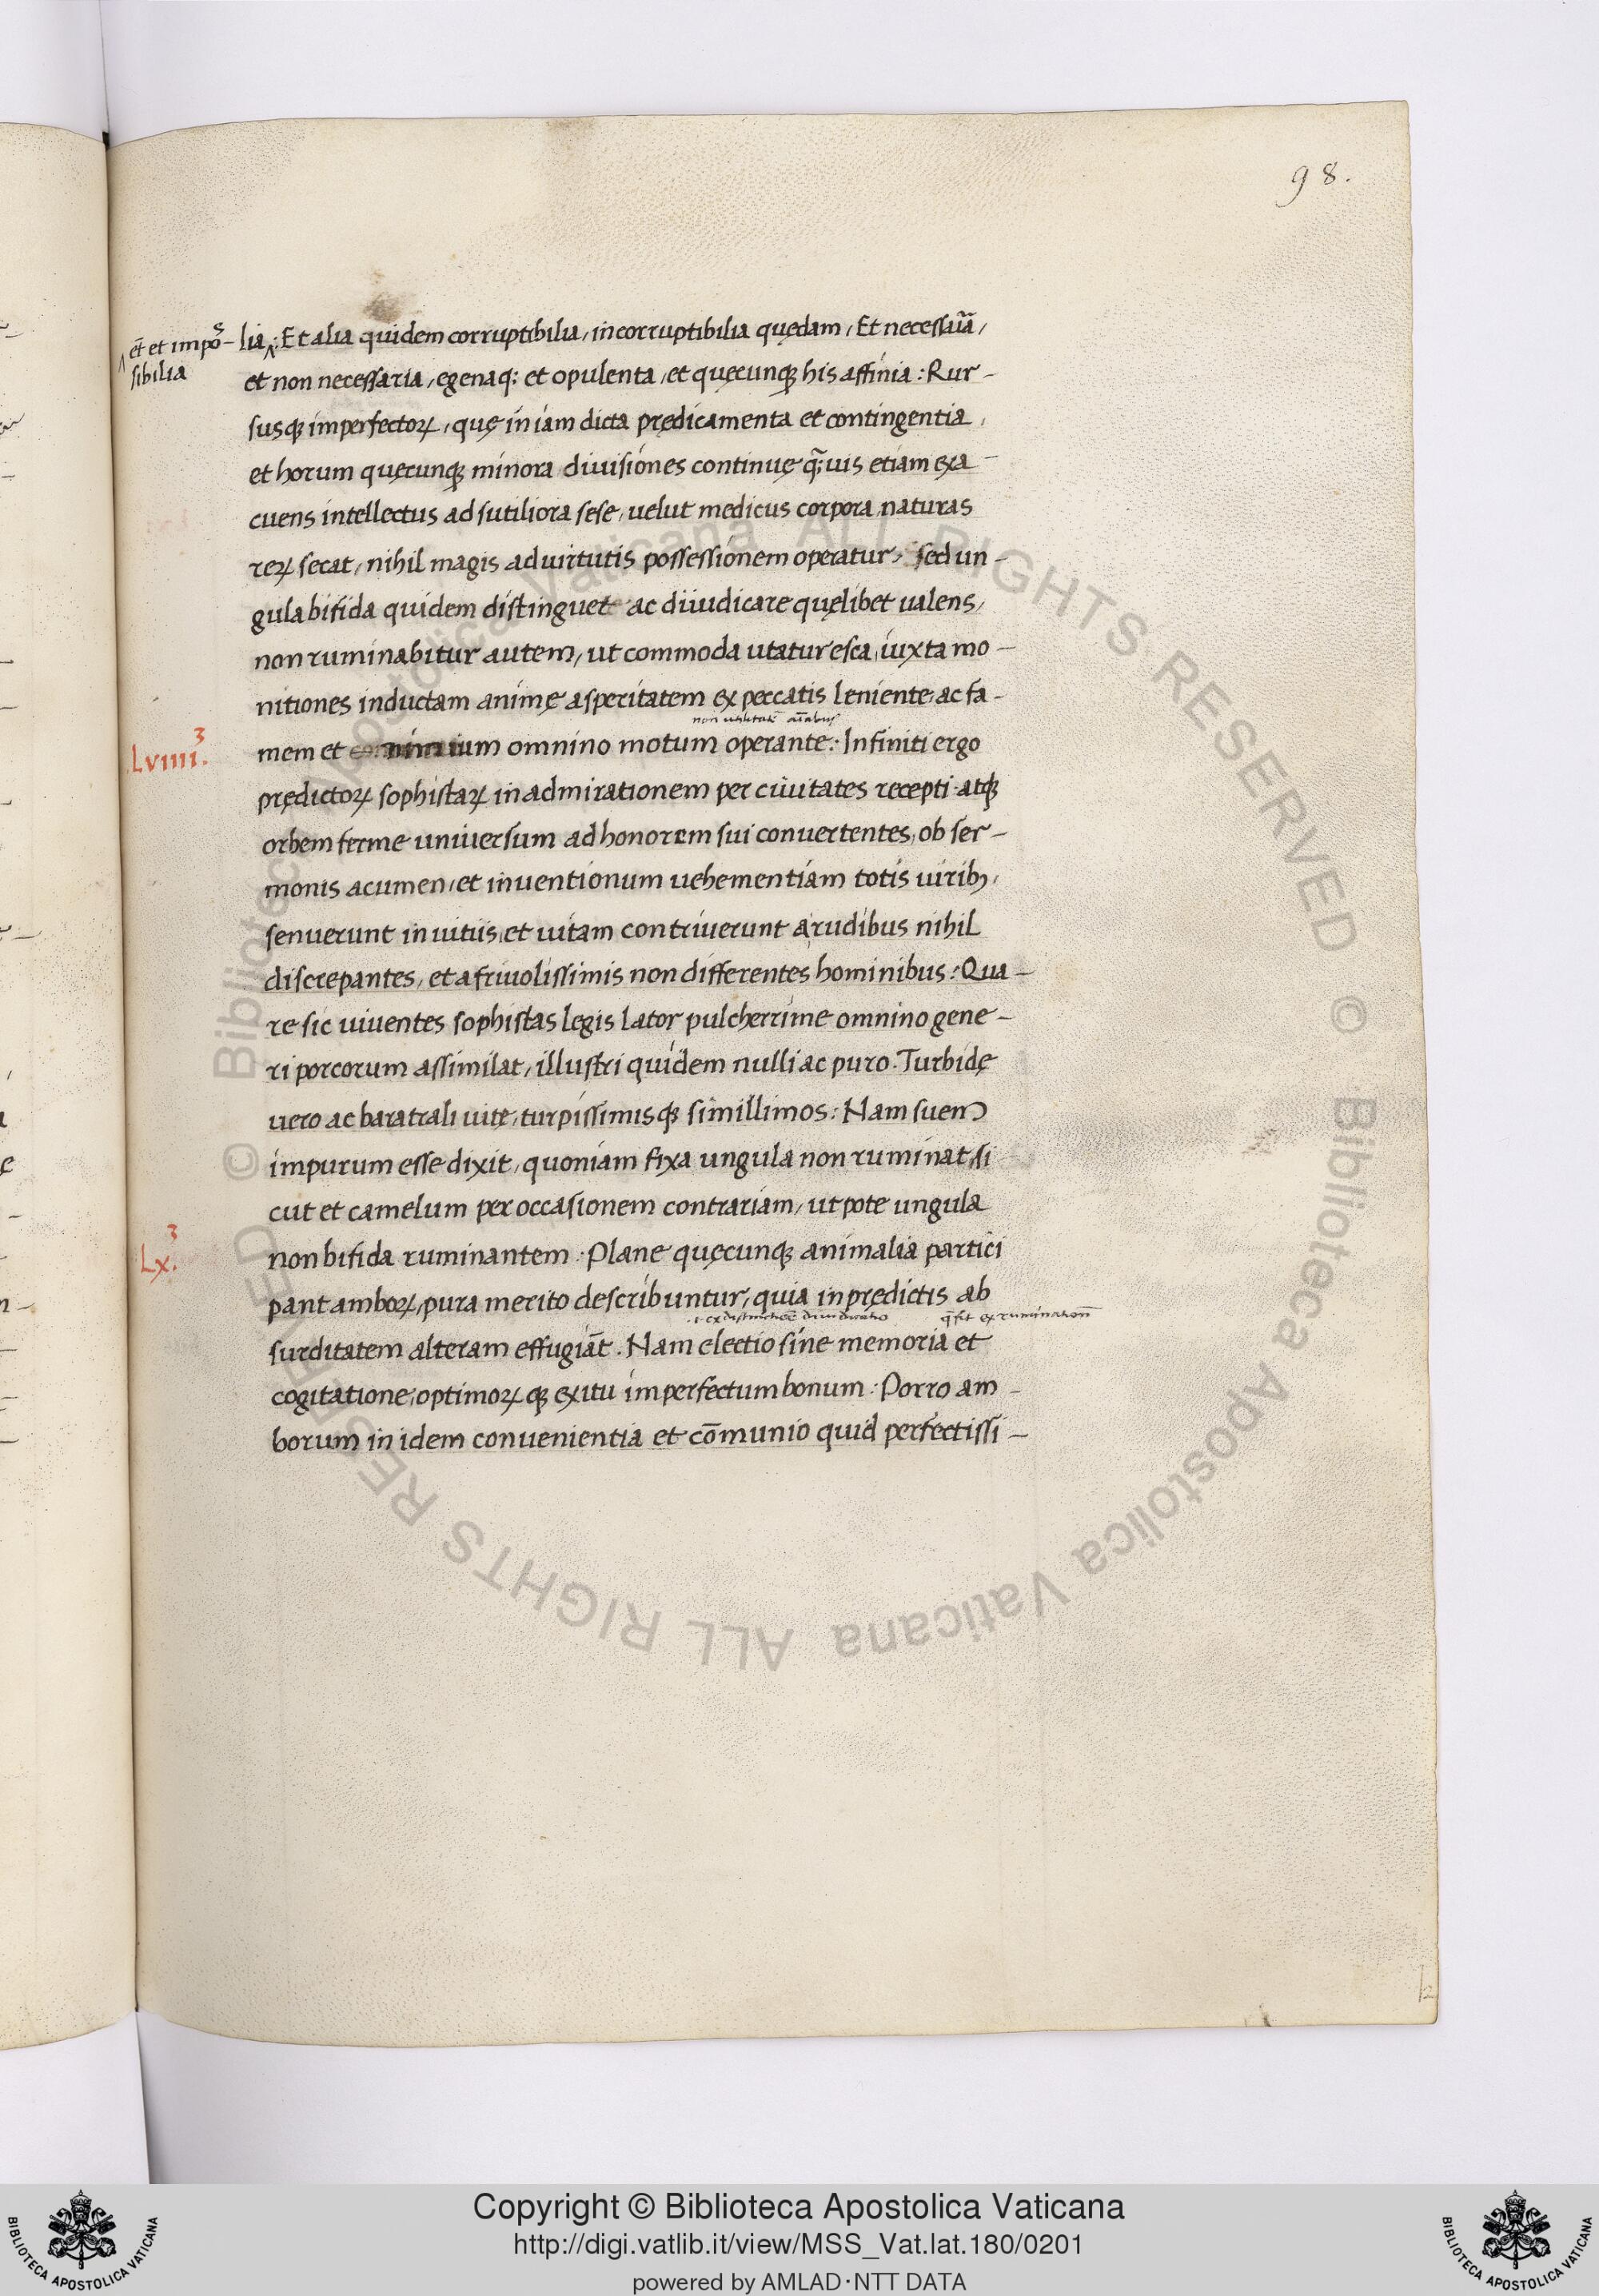 98.
et̄ et impoſ-
sibilia
lia: Et alia quidem corruptibilia, incorruptibilia quędam, Et necessaria,
et non necessaria, egenaq; et opulenta, et quęcunqꝫ his affinia: Rur-
susqꝫ imperfectoꝝ, quę in iam dicta prędicamenta et contingentia,
et horum quęcunqꝫ minora diuisiones continuę q̄;uis etiam exa-
cuens intellectus ad sutiliora sese, uelut medicus corpora naturas
reꝝ secat, nihil magis ad uirtutis possessionem operatur, sed un-
gula bifida quidem distinguet ac diiudicare quęlibet ualens,
non ruminabitur autem, ut commoda utatur esca, iuxta mo-
nitiones inductam animę asperitatem ex peccatis leniente, ac fa-
non utilitatē
Lviiii.3
mem et omnino motum operante: Infiniti ergo
prędictoꝝ sophistaꝝ in admirationem per ciuitates recepti atqꝫ
orbem ferme uniuersum ad honorem sui conuertentes, ob ser-
monis acumen, et inuentionum uehementiam totis uiribꝫ,
senuerunt in uitiis, et uitam contriuerunt a rudibus nihil
discrepantes, et a friuolissimis non differentes hominibus: Qua-
re sic uiuentes sophistas legis lator pulcherrime omnino gene-
ri porcorum assimilat, illustri quidem nulli ac puro. Turbidę
uero ac baratrali uitę, turpissimisqꝫ simillimos: Nam suem
impurum esse dixit, quoniam fixa ungula non ruminat, si
cut et camelum per occasionem contrariam, ut pote ungula
Lx.3
non bifida ruminantem. Plane quęcunqꝫ animalia partici
pant amboꝝ, pura merito describuntur, quia in prędictis ab
.i. ex distinctiōe diiudicatio q̄ fit ex ruminationē
surditatem alteram effugiāt. Nam electio sine memoria et
cogitatione, optimoꝝqꝫ exitu imperfectum bonum: Porro am-
borum in idem conuenientia et cōmunio quid perfectissi-
© Biblioteca Apostolica Vaticana ALL RIGHTS RESERVED © Biblioteca Apostolica Vaticana ALL RIGHTS RESERVED
Copyright © Biblioteca Apostolica Vaticana
http://digi.vatlib.it/view/MSS_Vat.lat.180/0201
powered by AMLAD·NTT DATA
BIBLIOTECA APOSTOLICA VATICANA
BIBLIOTECA APOSTOLICA VATICANA